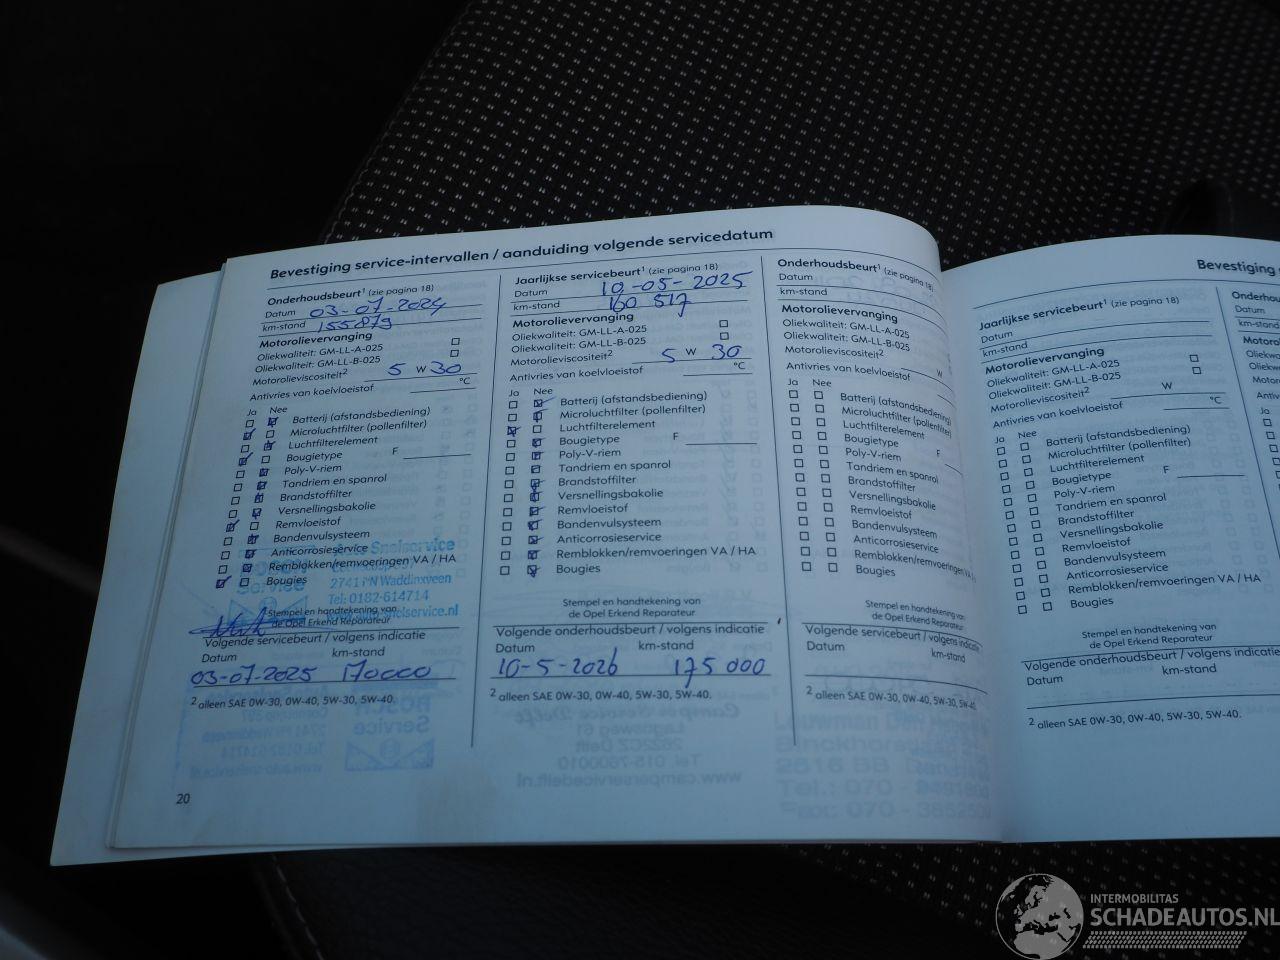 Bevestiging service-intervallen / aanduiding volgende servicedatum
Onderhoudsbeurt¹ (zie pagina 18)
Datum 03-07-2024
km-stand 155879
Motorolievervanging
Oliekwaliteit: GM-LL-A-025
Oliekwaliteit: GM-LL-B-025
Motorolieviscositeit² 5 W 30
Antivries van koelvloeistof °C
Ja Nee
Batterij (afstandsbediening)
Microluchtfilter (pollenfilter)
Luchtfilterelement
Bougietype F
Poly-V-riem
Tandriem en spanrol
Brandstoffilter
Versnellingsbakolie
Remvloeistof
Bandenvulsysteem
Anticorrosieservice
Remblokken/remvoeringen VA / HA
Bougies
Auto Snelservice
2741 PN Waddinxveen
Tel: 0182-614714
Stempel en handtekening van
de Opel Erkend Reparateur
Volgende servicebeurt / volgens indicatie
Datum km-stand
03-07-2025 170000
² alleen SAE 0W-30, 0W-40, 5W-30, 5W-40.
20
Jaarlijkse servicebeurt¹ (zie pagina 18)
Datum 10-05-2025
km-stand 160 517
Motorolievervanging
Oliekwaliteit: GM-LL-A-025
Oliekwaliteit: GM-LL-B-025
Motorolieviscositeit² 5 W 30
Antivries van koelvloeistof °C
Ja Nee
Batterij (afstandsbediening)
Microluchtfilter (pollenfilter)
Luchtfilterelement
Bougietype F
Poly-V-riem
Tandriem en spanrol
Brandstoffilter
Versnellingsbakolie
Remvloeistof
Bandenvulsysteem
Anticorrosieservice
Remblokken/remvoeringen VA / HA
Bougies
Stempel en handtekening van
de Opel Erkend Reparateur
Volgende onderhoudsbeurt / volgens indicatie
Datum km-stand
10-5-2026 175 000
² alleen SAE 0W-30, 0W-40, 5W-30, 5W-40.
Onderhoudsbeurt¹ (zie pagina 18)
Datum
km-stand
Motorolievervanging
Oliekwaliteit: GM-LL-A-025
Oliekwaliteit: GM-LL-B-025
Motorolieviscositeit² W
Antivries van koelvloeistof
Ja Nee
Batterij (afstandsbediening)
Microluchtfilter (pollenfilter)
Luchtfilterelement
Bougietype F
Poly-V-riem
Tandriem en spanrol
Brandstoffilter
Versnellingsbakolie
Remvloeistof
Bandenvulsysteem
Anticorrosieservice
Remblokken/remvoeringen VA
Bougies
Stempel en handtekening van
de Opel Erkend Reparateur
Volgende servicebeurt / volgens indicatie
Datum km-stand
² alleen SAE 0W-30, 0W-40, 5W-30, 5W-40.
Bevestiging
Jaarlijkse servicebeurt¹ (zie pagina 18)
Datum
km-stand
Motorolievervanging
Oliekwaliteit: GM-LL-A-025
Oliekwaliteit: GM-LL-B-025
Motorolieviscositeit² W
Antivries van koelvloeistof °C
Ja Nee
Batterij (afstandsbediening)
Microluchtfilter (pollenfilter)
Luchtfilterelement
Bougietype F
Poly-V-riem
Tandriem en spanrol
Brandstoffilter
Versnellingsbakolie
Remvloeistof
Bandenvulsysteem
Anticorrosieservice
Remblokken/remvoeringen VA / HA
Bougies
Stempel en handtekening van
de Opel Erkend Reparateur
Volgende onderhoudsbeurt / volgens indicatie
Datum km-stand
² alleen SAE 0W-30, 0W-40, 5W-30, 5W-40.
Datum
km-stand
INTERMOBILITAS
SCHADEAUTOS.NL